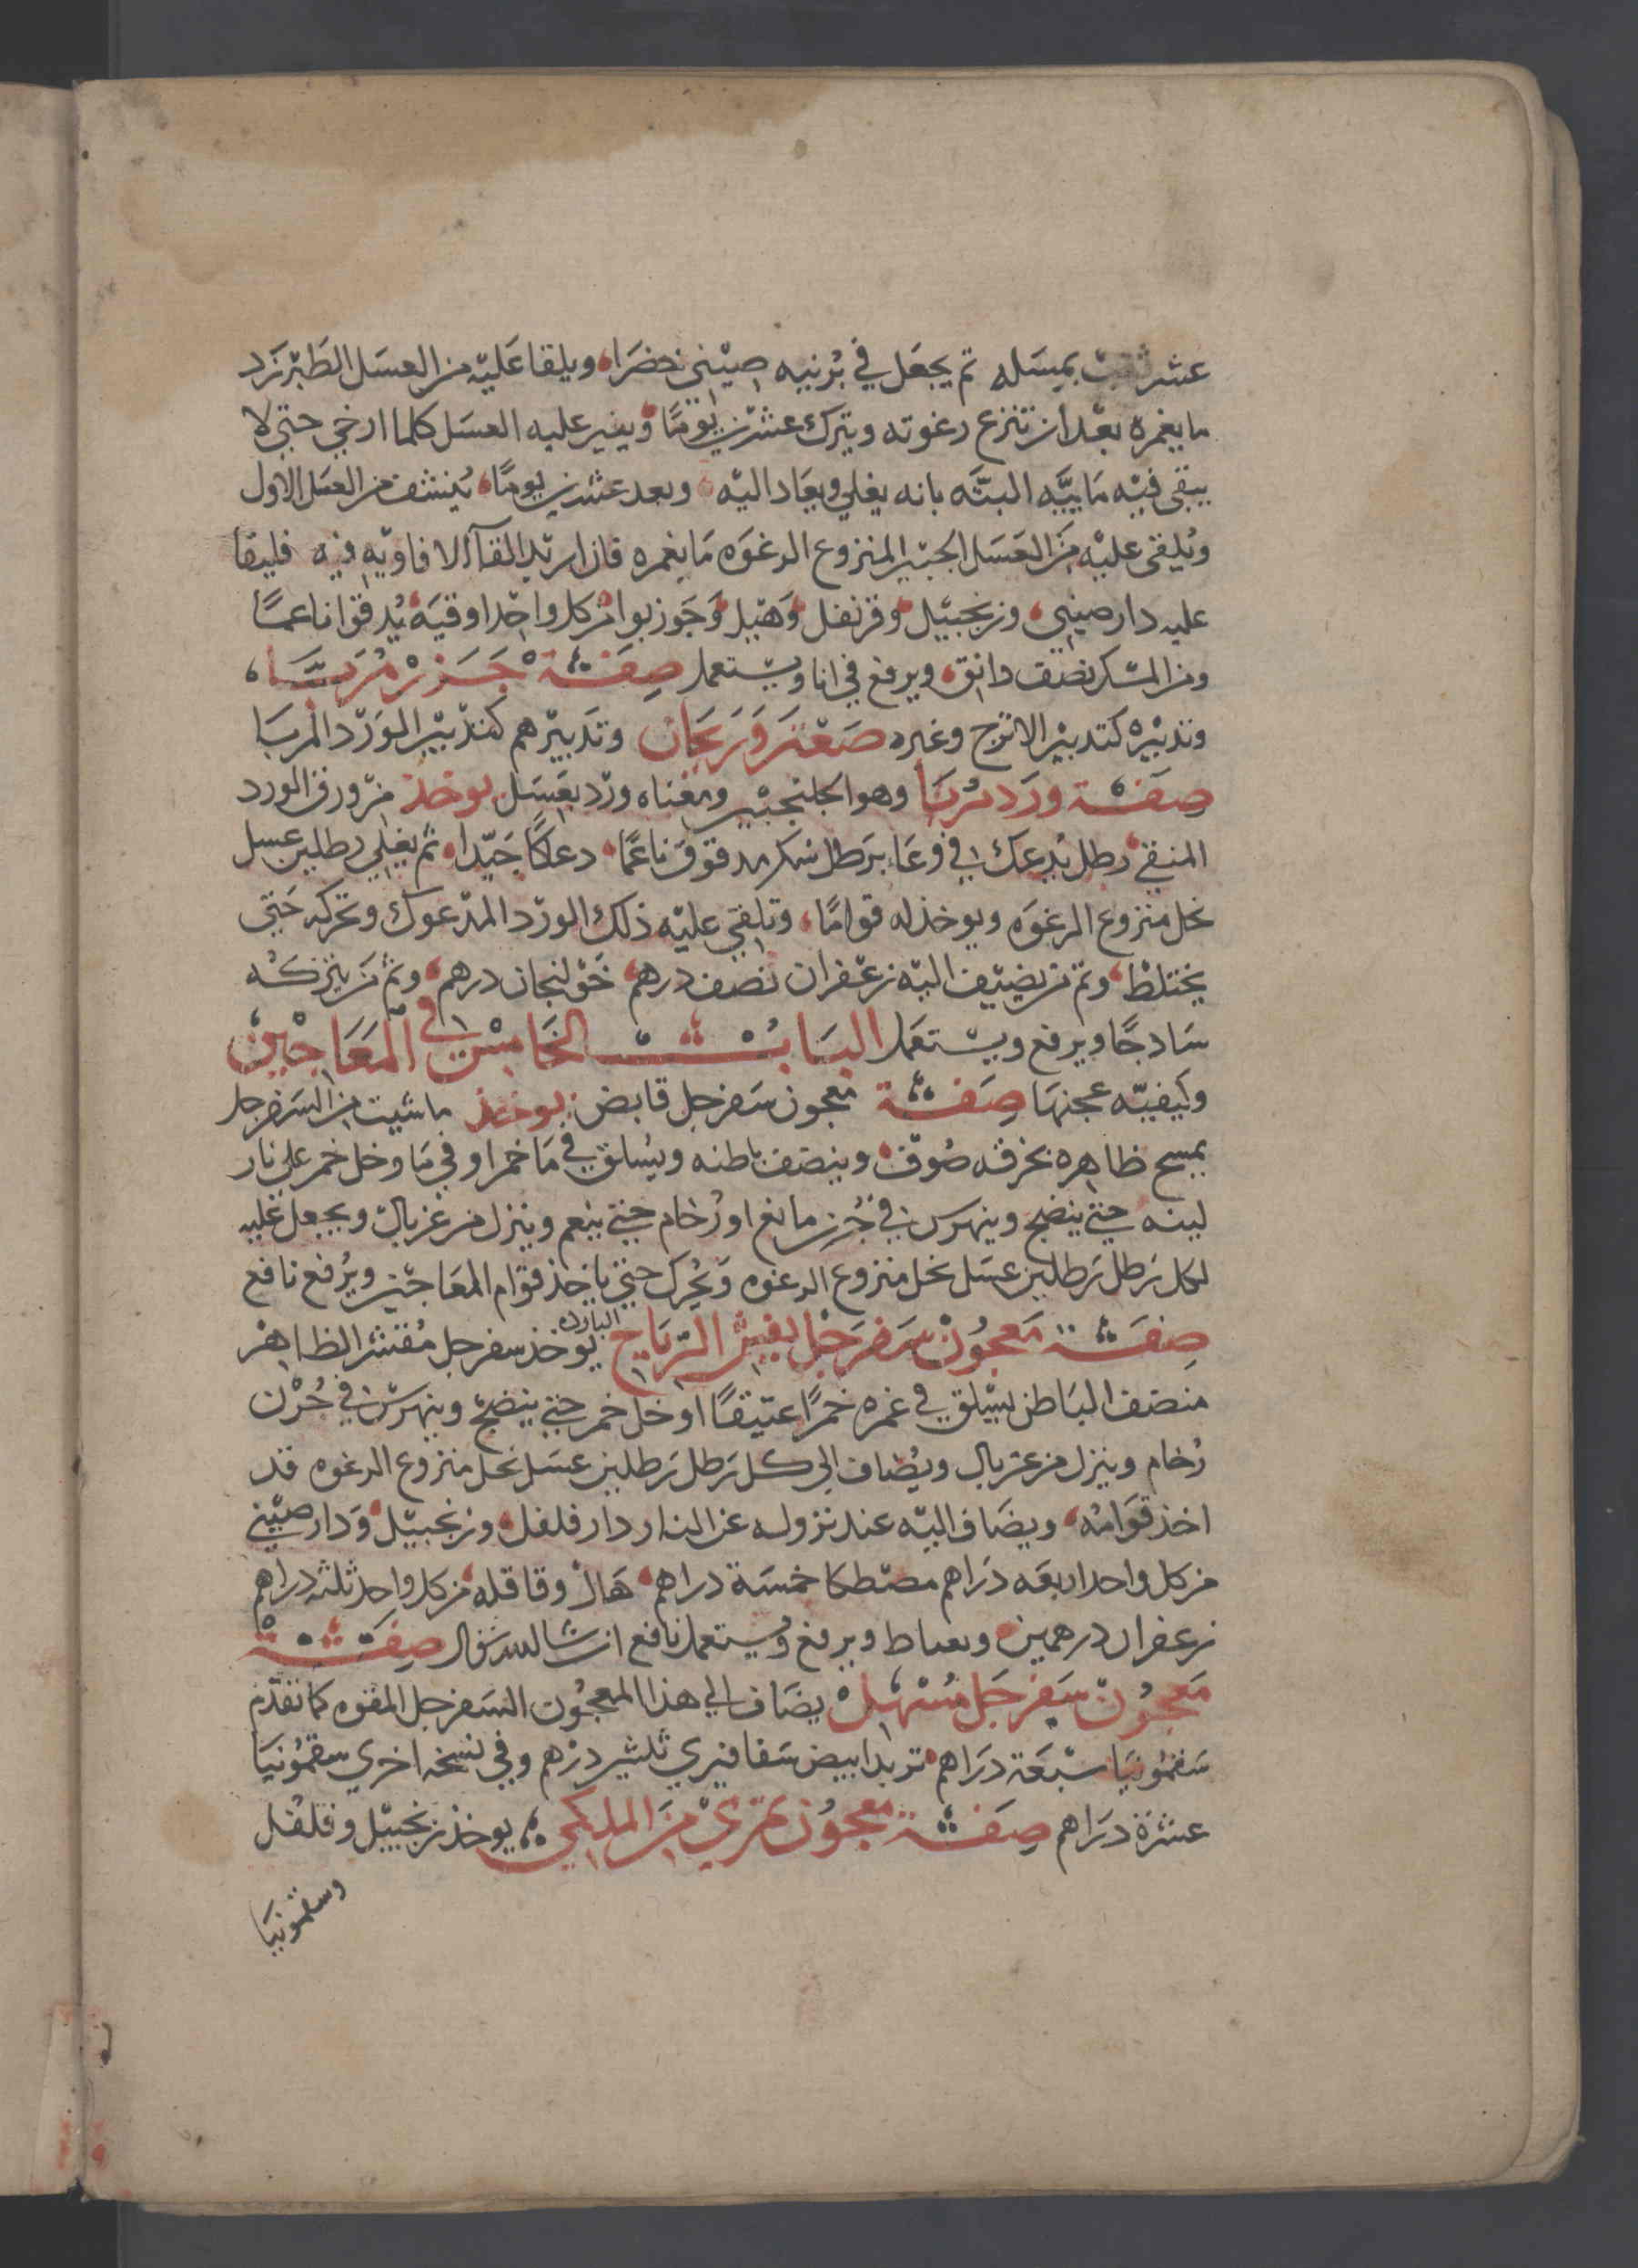 عشر بمسله ثم يجعل في برنيه صيني خضرا ويلقا عليه من العسل الطبرزد
ما يغمره بعد ان تنزع رغوته ويترك عشرين يومًا ويغير عليه العسل كلما ارخي حتي لا
يبقي فيه ماييه البته بانه يغلي ويعاد اليه وبعد عشرين يومًا ينشف من العسل الاول
ويلقي عليه من العسل المنزوع الرغوه ما يغمره فان اريد القآ الافاويه فيه فليقا
عليه دارصيني وزنجبيل وقرنفل وهيل وجوزبوا من كل واحد اوقيه يدقوا ناعمًا
ومن المسك نصف دانق ويرفع في انا ويستعمل صفة جزر مربا
وتدبيره كتدبير الاترج وغيره صعتر وريحان وتدبيرهم كتدبير الورد المربا
صفة ورد مربا وهو الجلنجبين ومعناه ورد بعسل يوخذ من ورق الورد
المنقي رطل يدعك في وعا برطل سكر مدقوق ناعمًا دعكًا جيدا ثم يغلي رطلين عسل
نحل منزوع الرغوه ويوخذ له قوامًا وتلقي عليه ذلك الورد المدعوك وتحركه حتي
يختلط وثم من يضيف اليه زعفران نصف درهم خولنجان درهم وثم من يتركه
ساذجًا ويرفع ويستعمل الباب الخامس في المعاجين
وكيفيه عجنها صفة معجون سفرجل قابض يوخذ ما شيت من السفرجل
يمسح ظاهره بخرقه صوف وينصف باطنه ويسلق في ما خمر او في ما وخل خمر علي نار
لينه حتي ينضج وينهرس في جرن مانع او رخام حتي ينعم وينزل من غربال ويجعل عليه
لكل رطل رطلين عسل نحل منزوع الرغوه ويحرك حتي ياخذ قوام المعاجين ويرفع نافع
صفة معجون سفرجل يفش الرياح الباردة يوخذ سفرجل مقشر الظاهر
منصف الباطن يسلق في غمره خمرًا عتيقًا او خل خمر حتي ينضج وينهرس في جرن
رخام وينزل من غربال ويضاف الي كل رطل رطلين عسل نحل منزوع الرغوه قد
اخذ قوامه ويضاف اليه عند نزوله عن النار دار فلفل وزنجبيل ودارصيني
من كل واحد اربعه دراهم مصطكا خمسة دراهم هال وقاقله من كل واحد ثلثه دراهم
زعفران درهمين ويرفع ويستعمل نافع ان شا الله تعالي صفة
معجون سفرجل مسهل يضاف الي هذا المعجون السفرجل المفوه كما تقدم
سقمونيا سبعة دراهم تربد ابيض ثلثين درهم وفي نسخه اخري سقمونيا
عشرة دراهم صفة معجون تمري من الملكي يوخذ زنجبيل وفلفل
وسقمونيا